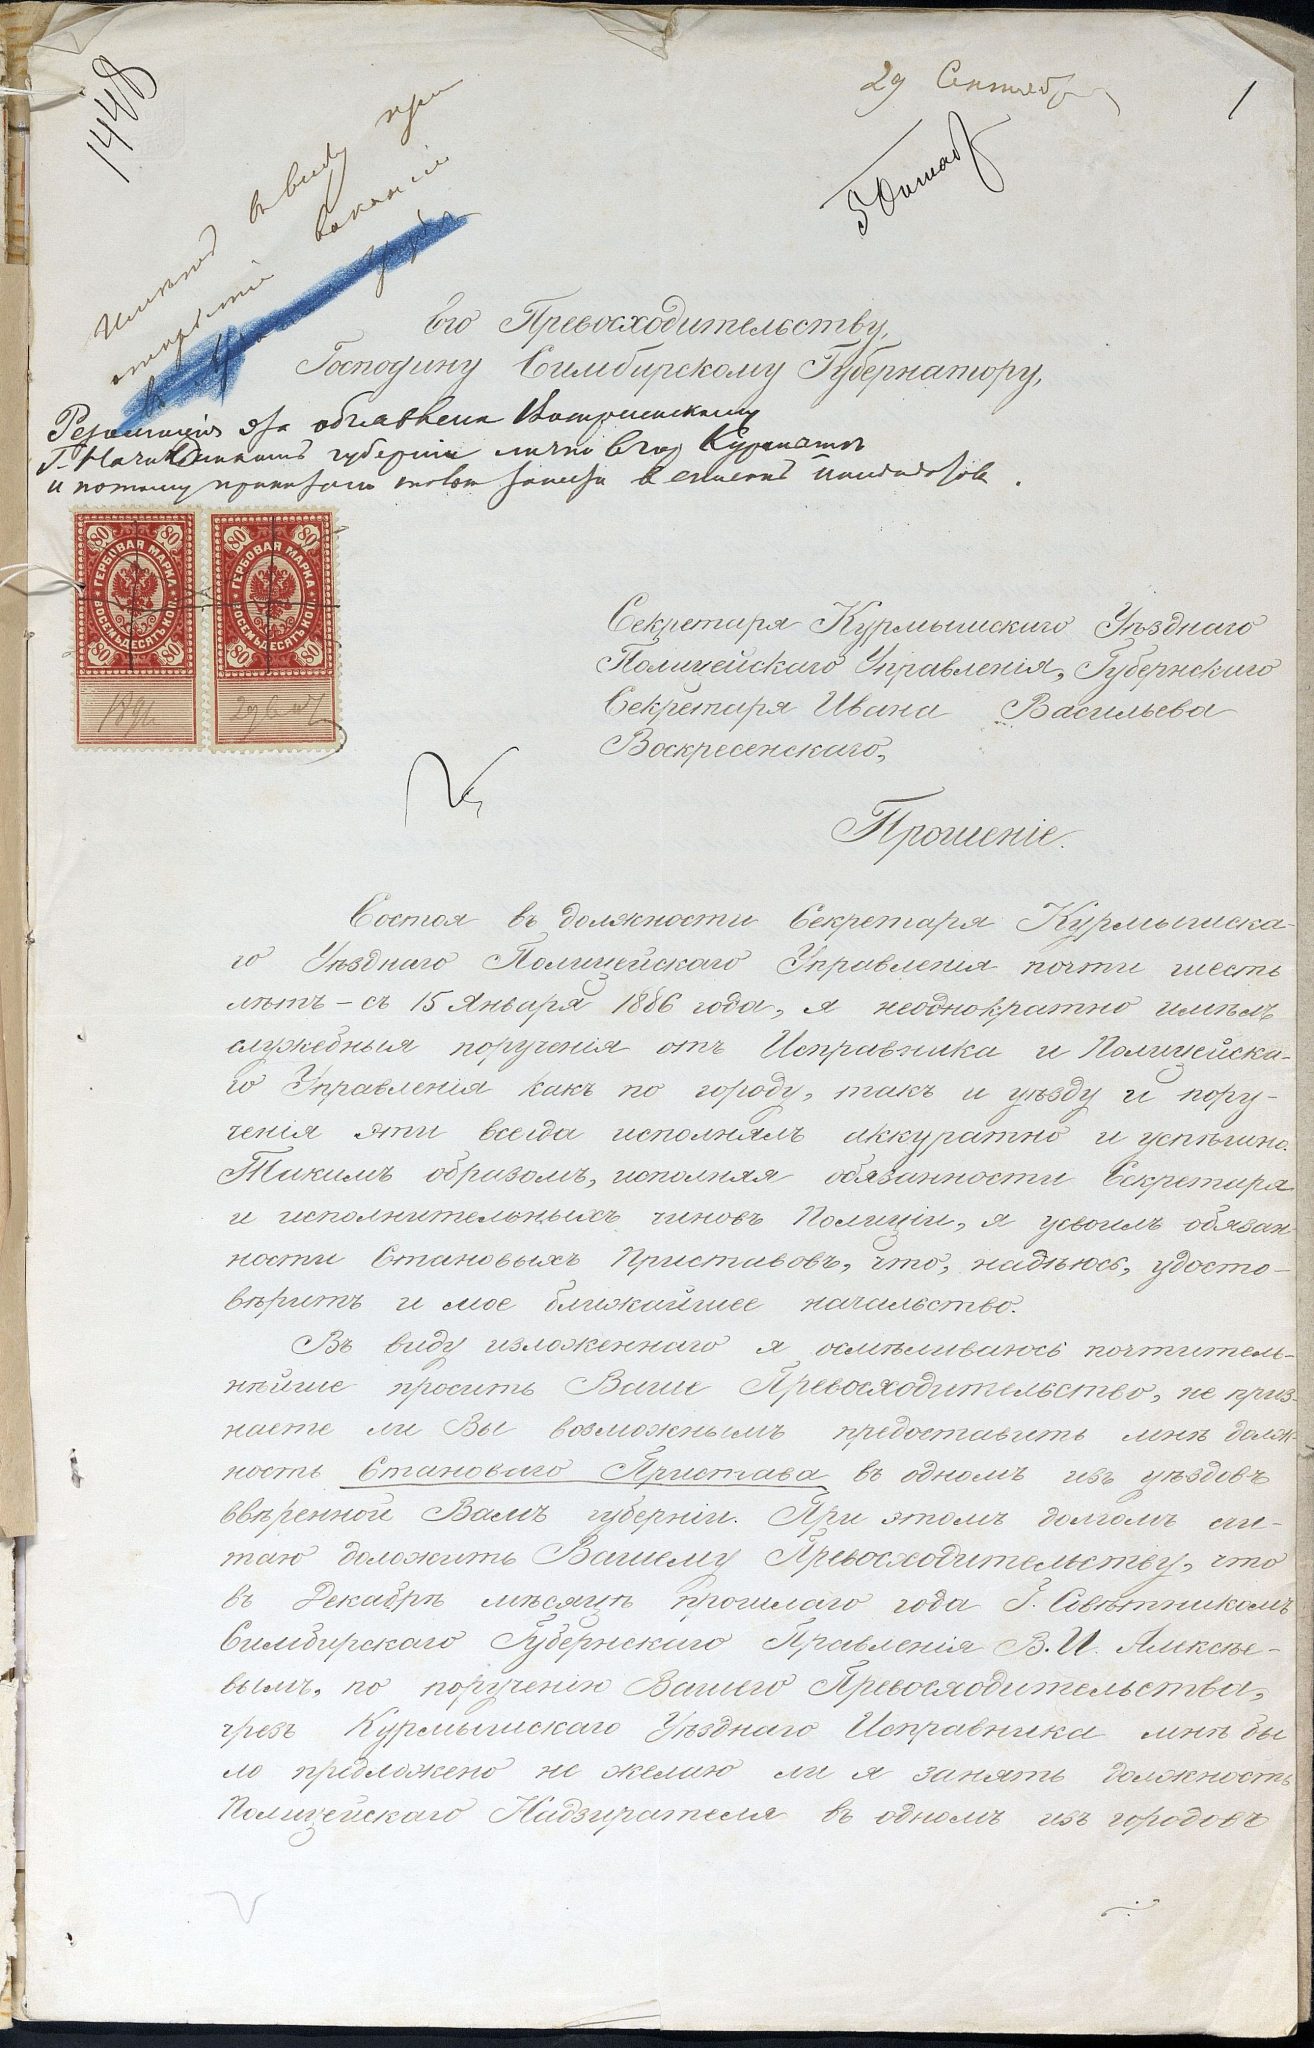 1448
29 Сентября
1
5 Октяб
Имѣть въ виду при
открытіи вакансіи
Его Превосходительству,
Господину Симбирскому Губернатору,
Резолюція эта объявлена Воскресенскому
Г. Начальникомъ губерніи лично въ гор Курмышѣ
и потому в списокъ кандидатовъ.
80 80 80 80
ГЕРБОВАЯ МАРКА ГЕРБОВАЯ МАРКА
ВОСЕМЬДЕСЯТЪ КОП. ВОСЕМЬДЕСЯТЪ КОП.
80 80 80 80
1891 29 Сент
Секретаря Курмышскаго Уѣзднаго
Полицейскаго Управленія, Губернскаго
Секретаря Ивана Васильева
Воскресенскаго,
Прошеніе.
Состоя въ должности Секретаря Курмышска-
го Уѣзднаго Полицейскаго Управленія почти шесть
лѣтъ – съ 15 Января 1886 года, я неоднократно имѣлъ
служебныя порученія отъ Исправника и Полицейска-
го Управленія какъ по городу, такъ и уѣзду и пору-
ченія эти всегда исполнялъ аккуратно и успѣшно.
Такимъ образомъ, исполняя обязанности Секретаря
и исполнительныхъ чиновъ Полиціи, я усвоилъ обязан-
ности Становыхъ Приставовъ, что, надѣюсь, удосто-
вѣритъ и мое ближайшее начальство.
Въ виду изложеннаго я осмѣливаюсь почтитель-
нѣйше просить Ваше Превосходительство, не приз-
наете ли Вы возможнымъ предоставить мнѣ долж-
ность Становаго Пристава въ одномъ изъ уѣздовъ
ввѣренной Вамъ губерніи. При этомъ долгомъ счи-
таю доложить Вашему Превосходительству, что
въ Декабрѣ мѣсяцѣ прошлаго года Г. Совѣтникомъ
Симбирскаго Губернскаго Правленія В. И. Алексѣе-
вымъ, по порученію Вашего Превосходительства,
чрезъ Курмышскаго Уѣзднаго Исправника мнѣ бы
ло предложено не желаю ли я занять должность
Полицейскаго Надзирателя въ одномъ изъ городовъ